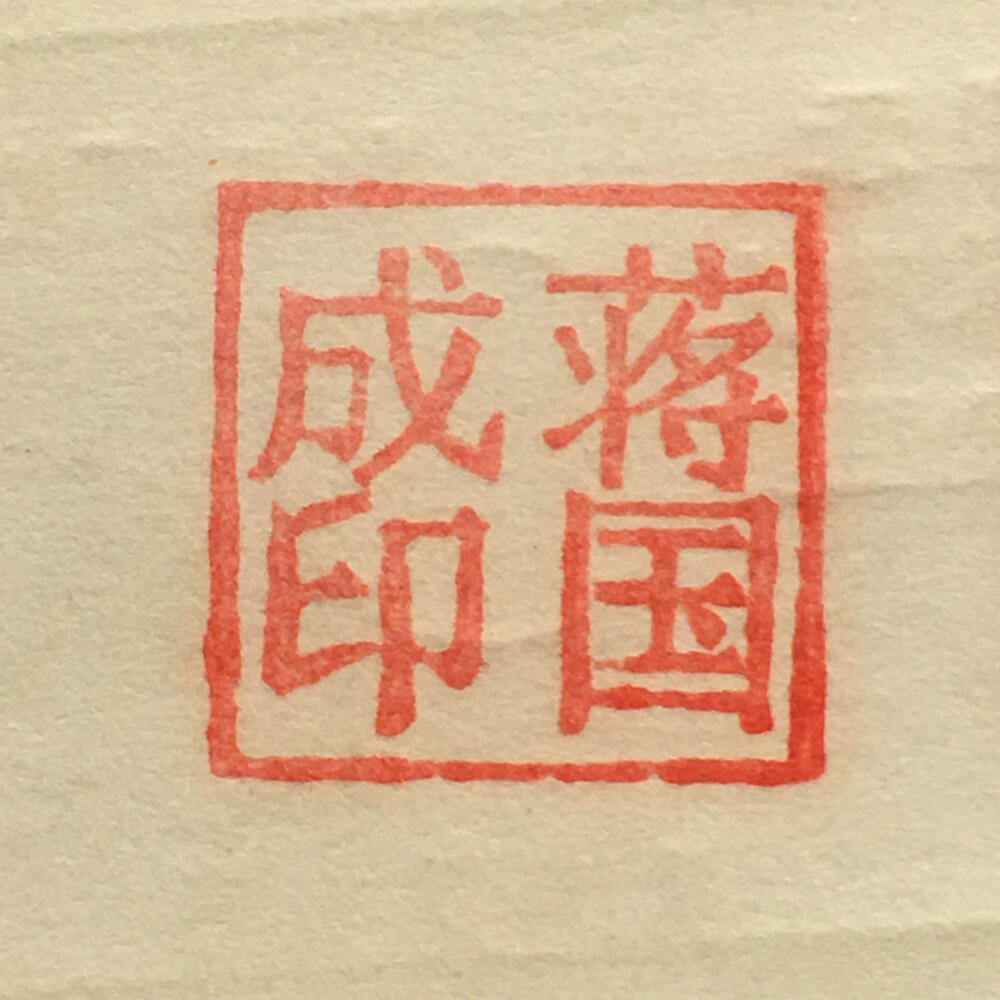 蒋国
成印